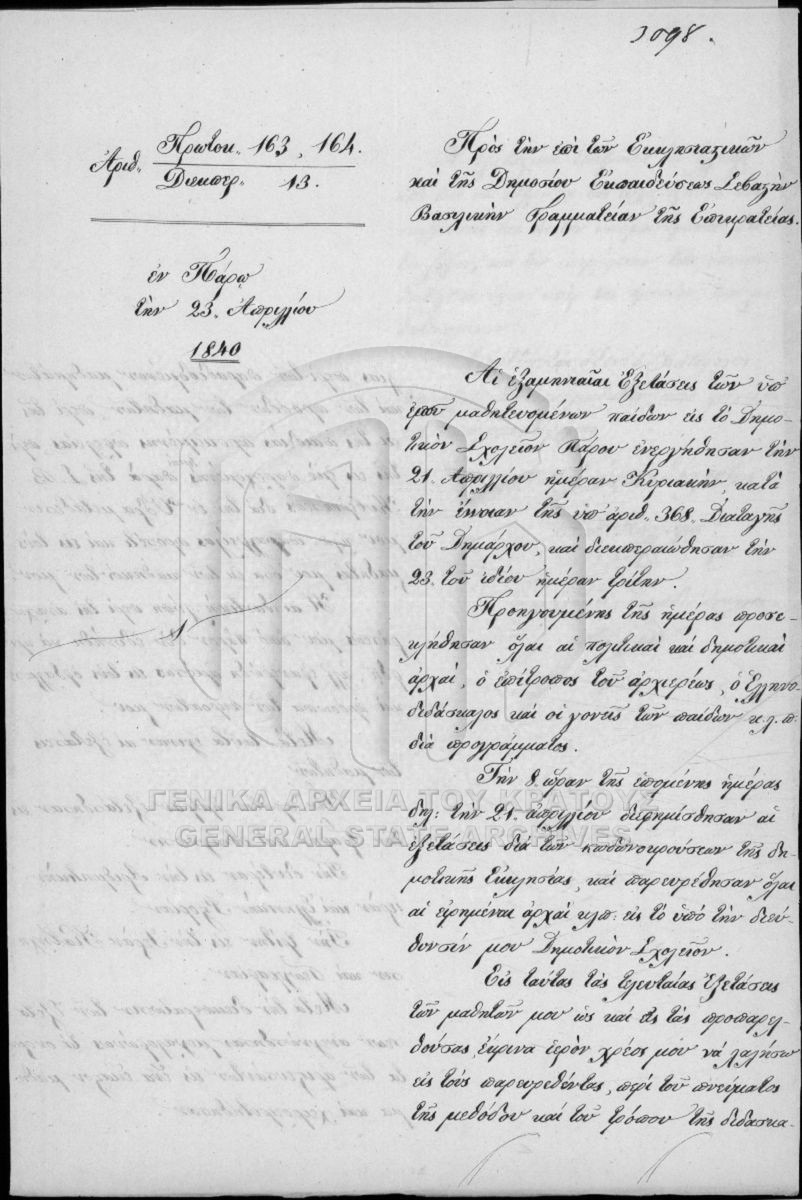 1098.
Ἀριθ. Πρωτοκ. 163, 164.
Διεκπερ. 13.
Πρὸς τὴν ἐπὶ τῶν Ἐκκλησιαστικῶν
καὶ τῆς Δημοσίου Ἐκπαιδεύσεως Σεβαστὴν
Βασιλικὴν Γραμματείαν τῆς Ἐπικρατείας.
ἐν Πάρῳ
τὴν 23. Ἀπριλλίου
1840
Αἱ ἑξαμηνιαῖαι Ἐξετάσεις τῶν ὑπ'
ἐμοῦ μαθητευομένων παίδων εἰς τὸ Δημο-
τικὸν Σχολεῖον Πάρου ἐνεργήθησαν τὴν
21. Ἀπριλλίου ἡμέραν Κυριακὴν, κατὰ
τὴν ἔννοιαν τῆς ὑπ' ἀριθ. 368. Διαταγῆς
τοῦ Δημάρχου, καὶ διεκπεραιώθησαν τὴν
23. τοῦ ἰδίου ἡμέραν τρίτην.
Προηγουμένης τῆς ἡμέρας προσε-
κλήθησαν ὅλαι αἱ πολιτικαὶ καὶ δημοτικαὶ
ἀρχαὶ, ὁ ἐπίτροπος τοῦ ἀρχιερέως, ὁ Ἑλληνο-
διδάσκαλος καὶ οἱ γονεῖς τῶν παίδων κ.λ.π.
διὰ προγράμματος.
Τὴν 8. ὥραν τῆς ἑπομένης ἡμέρας
δηλ: τὴν 21. ἀπριλλίου διεφημίσθησαν αἱ
ἐξετάσεις διὰ τῶν κωδωνοκρούσεων τῆς δη-
μοτικῆς Ἐκκλησίας, καὶ παρευρέθησαν ὅλαι
αἱ εἰρημέναι ἀρχαὶ κλπ. εἰς τὸ ὑπὸ τὴν διεύ-
θυνσίν μου Δημοτικὸν Σχολεῖον.
Εἰς ταύτας τὰς τελευταίας Ἐξετάσεις
τῶν μαθητῶν μου ὡς καὶ εἰς τὰς προπαρελ-
θούσας, ἔκρινα ἱερὸν χρέος μου νὰ λαλήσω
εἰς τοὺς παρευρεθέντας, περὶ τοῦ πνεύματος
τῆς μεθόδου καὶ τοῦ τρόπου τῆς διδασκα-
ΓΕΝΙΚΑ ΑΡΧΕΙΑ ΤΟΥ ΚΡΑΤΟΥΣ
GENERAL STATE ARCHIVES